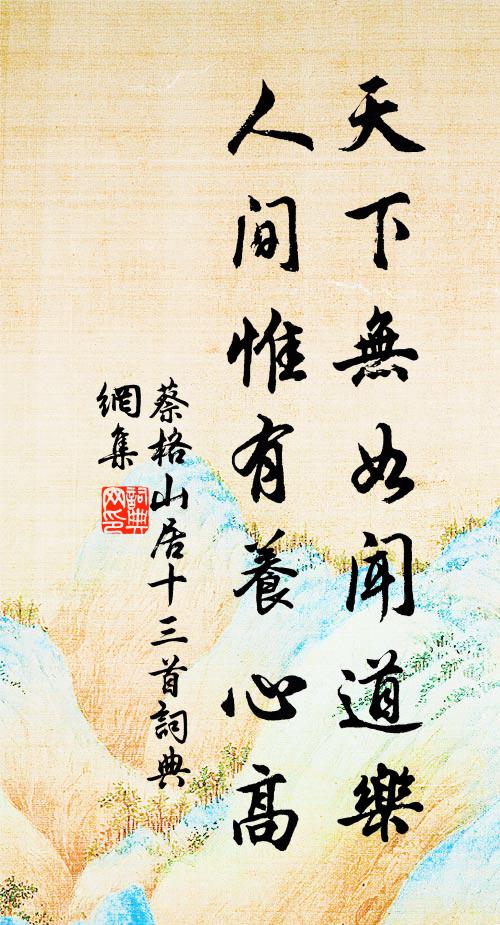 天下無如聞道樂
人間惟有養心高
蔡格山居十三首詞典
網集
詞典
网印